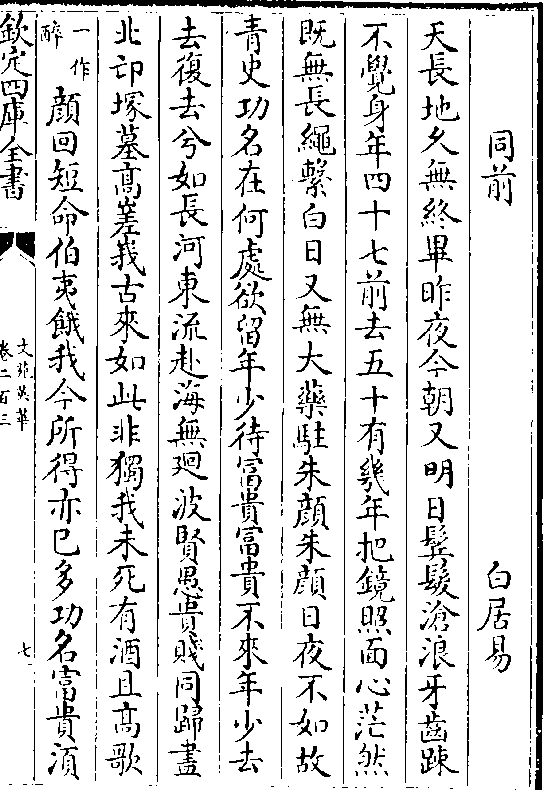 同前　　　　　　　　白居易
天長地久無終畢昨夜今朝又明日髩髮滄浪牙齒踈
不覺身年四十七前去五十有幾年把鏡照面心茫然
既無長繩繫白日又無大藥駐朱顔朱顔日夜不如故
青史功名在何處欲留年少待富貴富貴不來年少去
去復去兮如長河東流赴海無廻波賢愚貴賤同歸盡
北邙塚墓髙嵳峩古來如此非獨我未死有酒且髙歌
一作醉顔回短命伯夷餓我今所得亦已多功名富貴須
欽定四庫全書
文苑英華
卷二百三
七